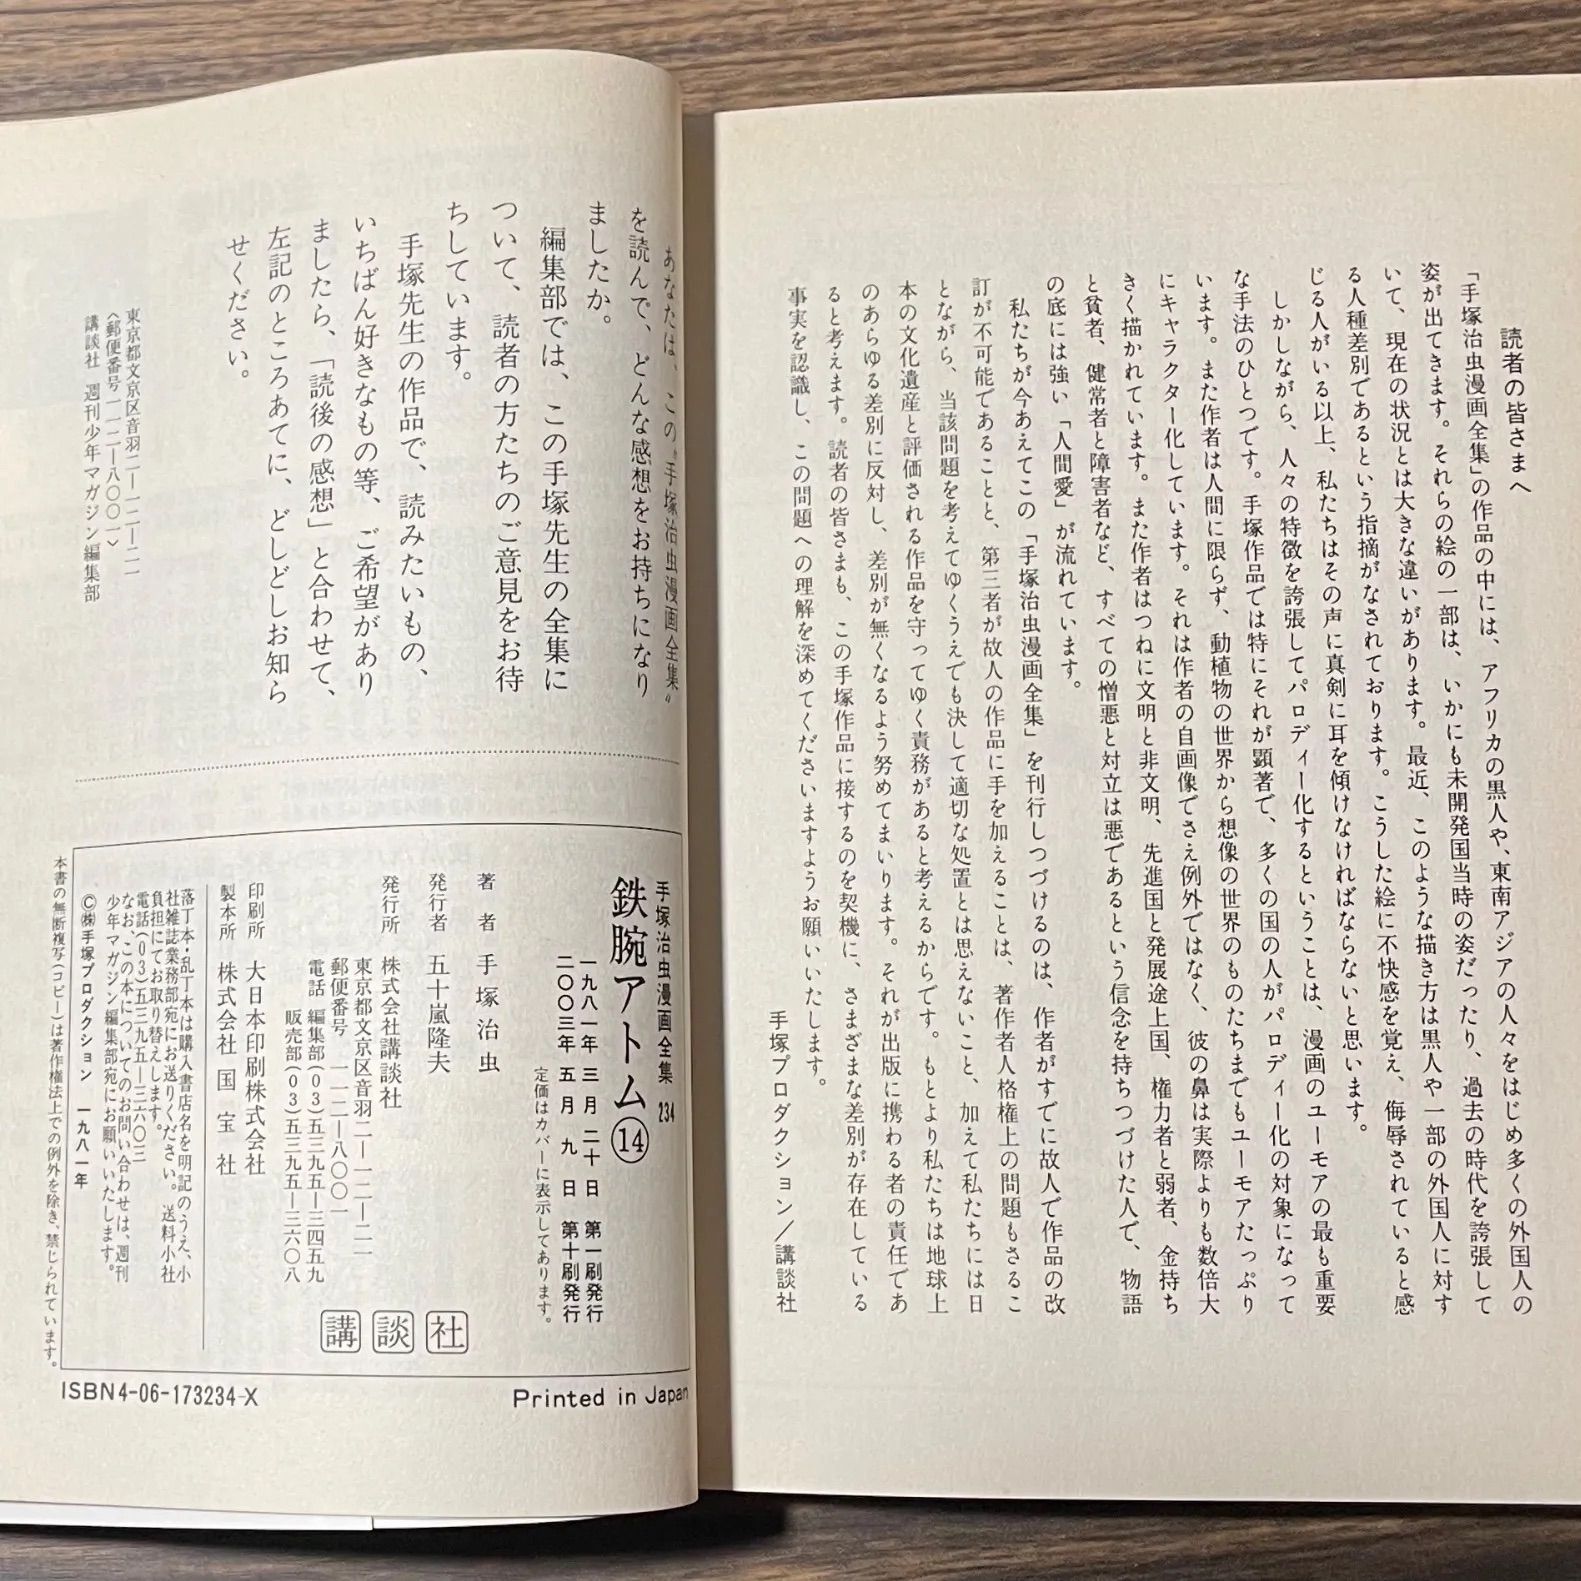 読者の皆さまへ
「手塚治虫漫画全集」の作品の中には、アフリカの黒人や、東南アジアの人々をはじめ多くの外国人の
姿が出てきます。それらの絵の一部は、いかにも未開発国当時の姿だったり、過去の時代を誇張して
いて、現在の状況とは大きな違いがあります。最近、このような描き方は黒人や一部の外国人に対す
る人種差別であるという指摘がなされております。こうした絵に不快感を覚え、侮辱されていると感
じる人がいる以上、私たちはその声に真剣に耳を傾けなければならないと思います。
しかしながら、人々の特徴を誇張してパロディー化するということは、漫画のユーモアの最も重要
な手法のひとつです。手塚作品では特にそれが顕著で、多くの国の人がパロディー化の対象になって
います。また作者は人間に限らず、動植物の世界から想像の世界のものたちまでもユーモアたっぷり
にキャラクター化しています。それは作者の自画像でさえ例外ではなく、彼の鼻は実際よりも数倍大
きく描かれています。また作者はつねに文明と非文明、先進国と発展途上国、権力者と弱者、金持ち
と貧者、健常者と障害者など、すべての憎悪と対立は悪であるという信念を持ちつづけた人で、物語
の底には強い「人間愛」が流れています。
私たちが今あえてこの「手塚治虫漫画全集」を刊行しつづけるのは、作者がすでに故人で作品の改
訂が不可能であることと、第三者が故人の作品に手を加えることは、著作者人格権上の問題もさるこ
とながら、当該問題を考えてゆくうえでも決して適切な処置とは思えないこと、加えて私たちには日
本の文化遺産と評価される作品を守ってゆく責務があると考えるからです。もとより私たちは地球上
のあらゆる差別に反対し、差別が無くなるよう努めてまいります。それが出版に携わる者の責任であ
ると考えます。読者の皆さまも、この手塚作品に接するのを契機に、さまざまな差別が存在している
事実を認識し、この問題への理解を深めてくださいますようお願いいたします。
手塚プロダクション／講談社
あなたは、この〝手塚治虫漫画全集〟
を読んで、どんな感想をお持ちになり
ましたか。
編集部では、この手塚先生の全集に
ついて、読者の方たちのご意見をお待
ちしています。
手塚先生の作品で、読みたいもの、
いちばん好きなもの等、ご希望があり
ましたら、「読後の感想」と合わせて、
左記のところあてに、どしどしお知ら
せください。
東京都文京区音羽二―一二―二一
〈郵便番号一一二―八〇〇一〉
講談社 週刊少年マガジン編集部
手塚治虫漫画全集 234
鉄腕アトム⑭
一九八一年 三月二十日 第一刷発行
二〇〇三年 五月 九 日 第十刷発行
定価はカバーに表示してあります。
著 者 手塚治虫
発行者 五十嵐隆夫
発行所 株式会社講談社
東京都文京区音羽二―一二―二一
郵便番号 一一二―八〇〇一
電話 編集部(０３)五三九五―三四五九
販売部(０３)五三九五―三六〇八
印刷所 大日本印刷株式会社
製本所 株式会社 国宝社
講談社
落丁本・乱丁本は購入書店名を明記のうえ、小
社雑誌業務部宛にお送りください。送料小社
負担にてお取り替えします。
電話(０３)五三九五―三六〇三
なお、この本についてのお問い合わせは、週刊
少年マガジン編集部宛にお願いいたします。
Ⓒ㈱手塚プロダクション 一九八一年
本書の無断複写(コピー)は著作権法上での例外を除き、禁じられています。
ISBN4-06-173234-X
Printed in Japan